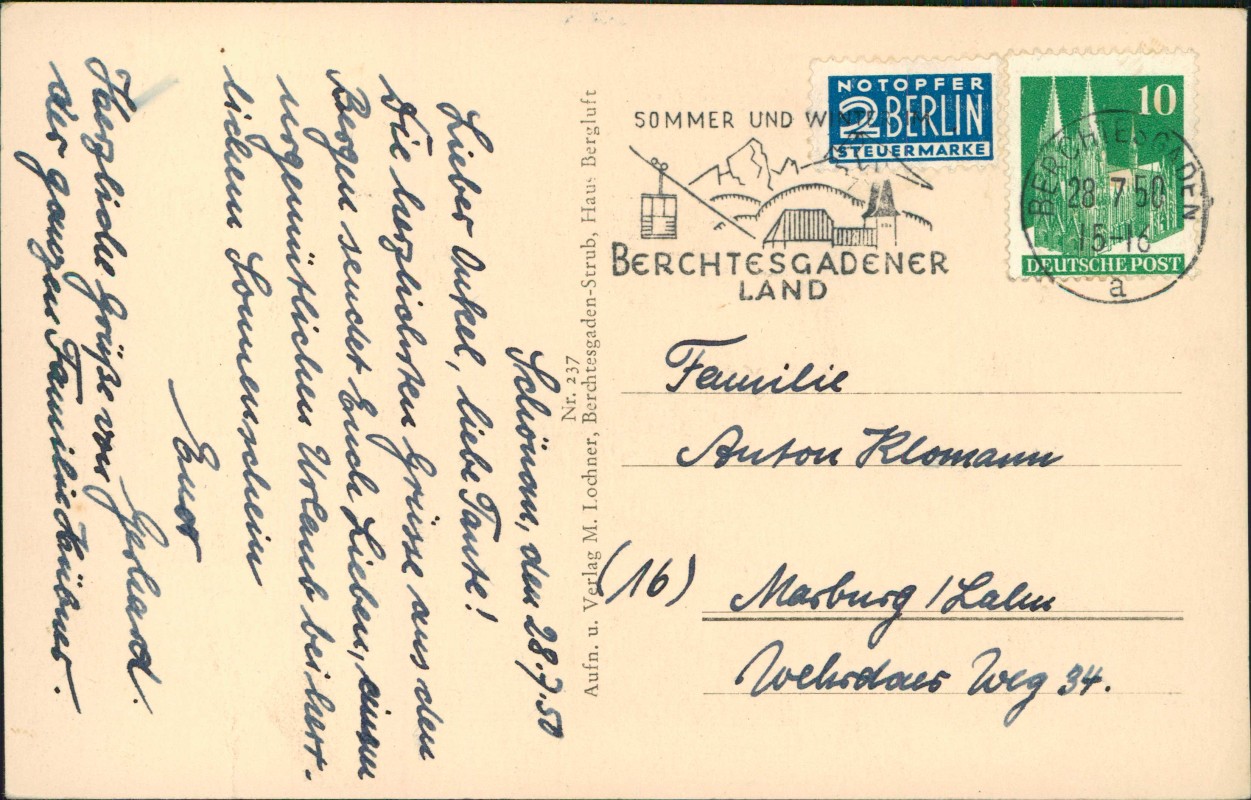 Schönau, den 28.7.50
Lieber Onkel, liebe Tante!
Die herzlichsten Grüsse aus den
Bergen sendet Euch Lieben, einen
urgemütlichen Urlaub bei herr-
lichem Sonnenschein
Ernst
Herzliche Grüße von Gerhard.
der ganzen Familie
Nr. 237
Aufn. u. Verlag M. Lochner, Berchtesgaden-Strub, Haus Bergluft
SOMMER UND WINTER IM
BERCHTESGADENER
LAND
NOTOPFER
2 BERLIN
STEUERMARKE
10
DEUTSCHE POST
BERCHTESGADEN
28.7.50
15-16
a
Familie
Anton Klomann
(16) Marburg / Lahn
Wehrdaer Weg 34.